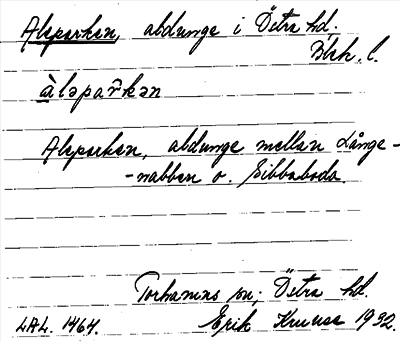 Alsparken, aldunge i Östra hd.
Blek. l.
àləpar̂kən
Alsparken, aldunge mellan Långe-
-nabben o. Sibbaboda.
Torhamns sn; Östra hd.
LAL. 1464. Erik Kruuse 1932.